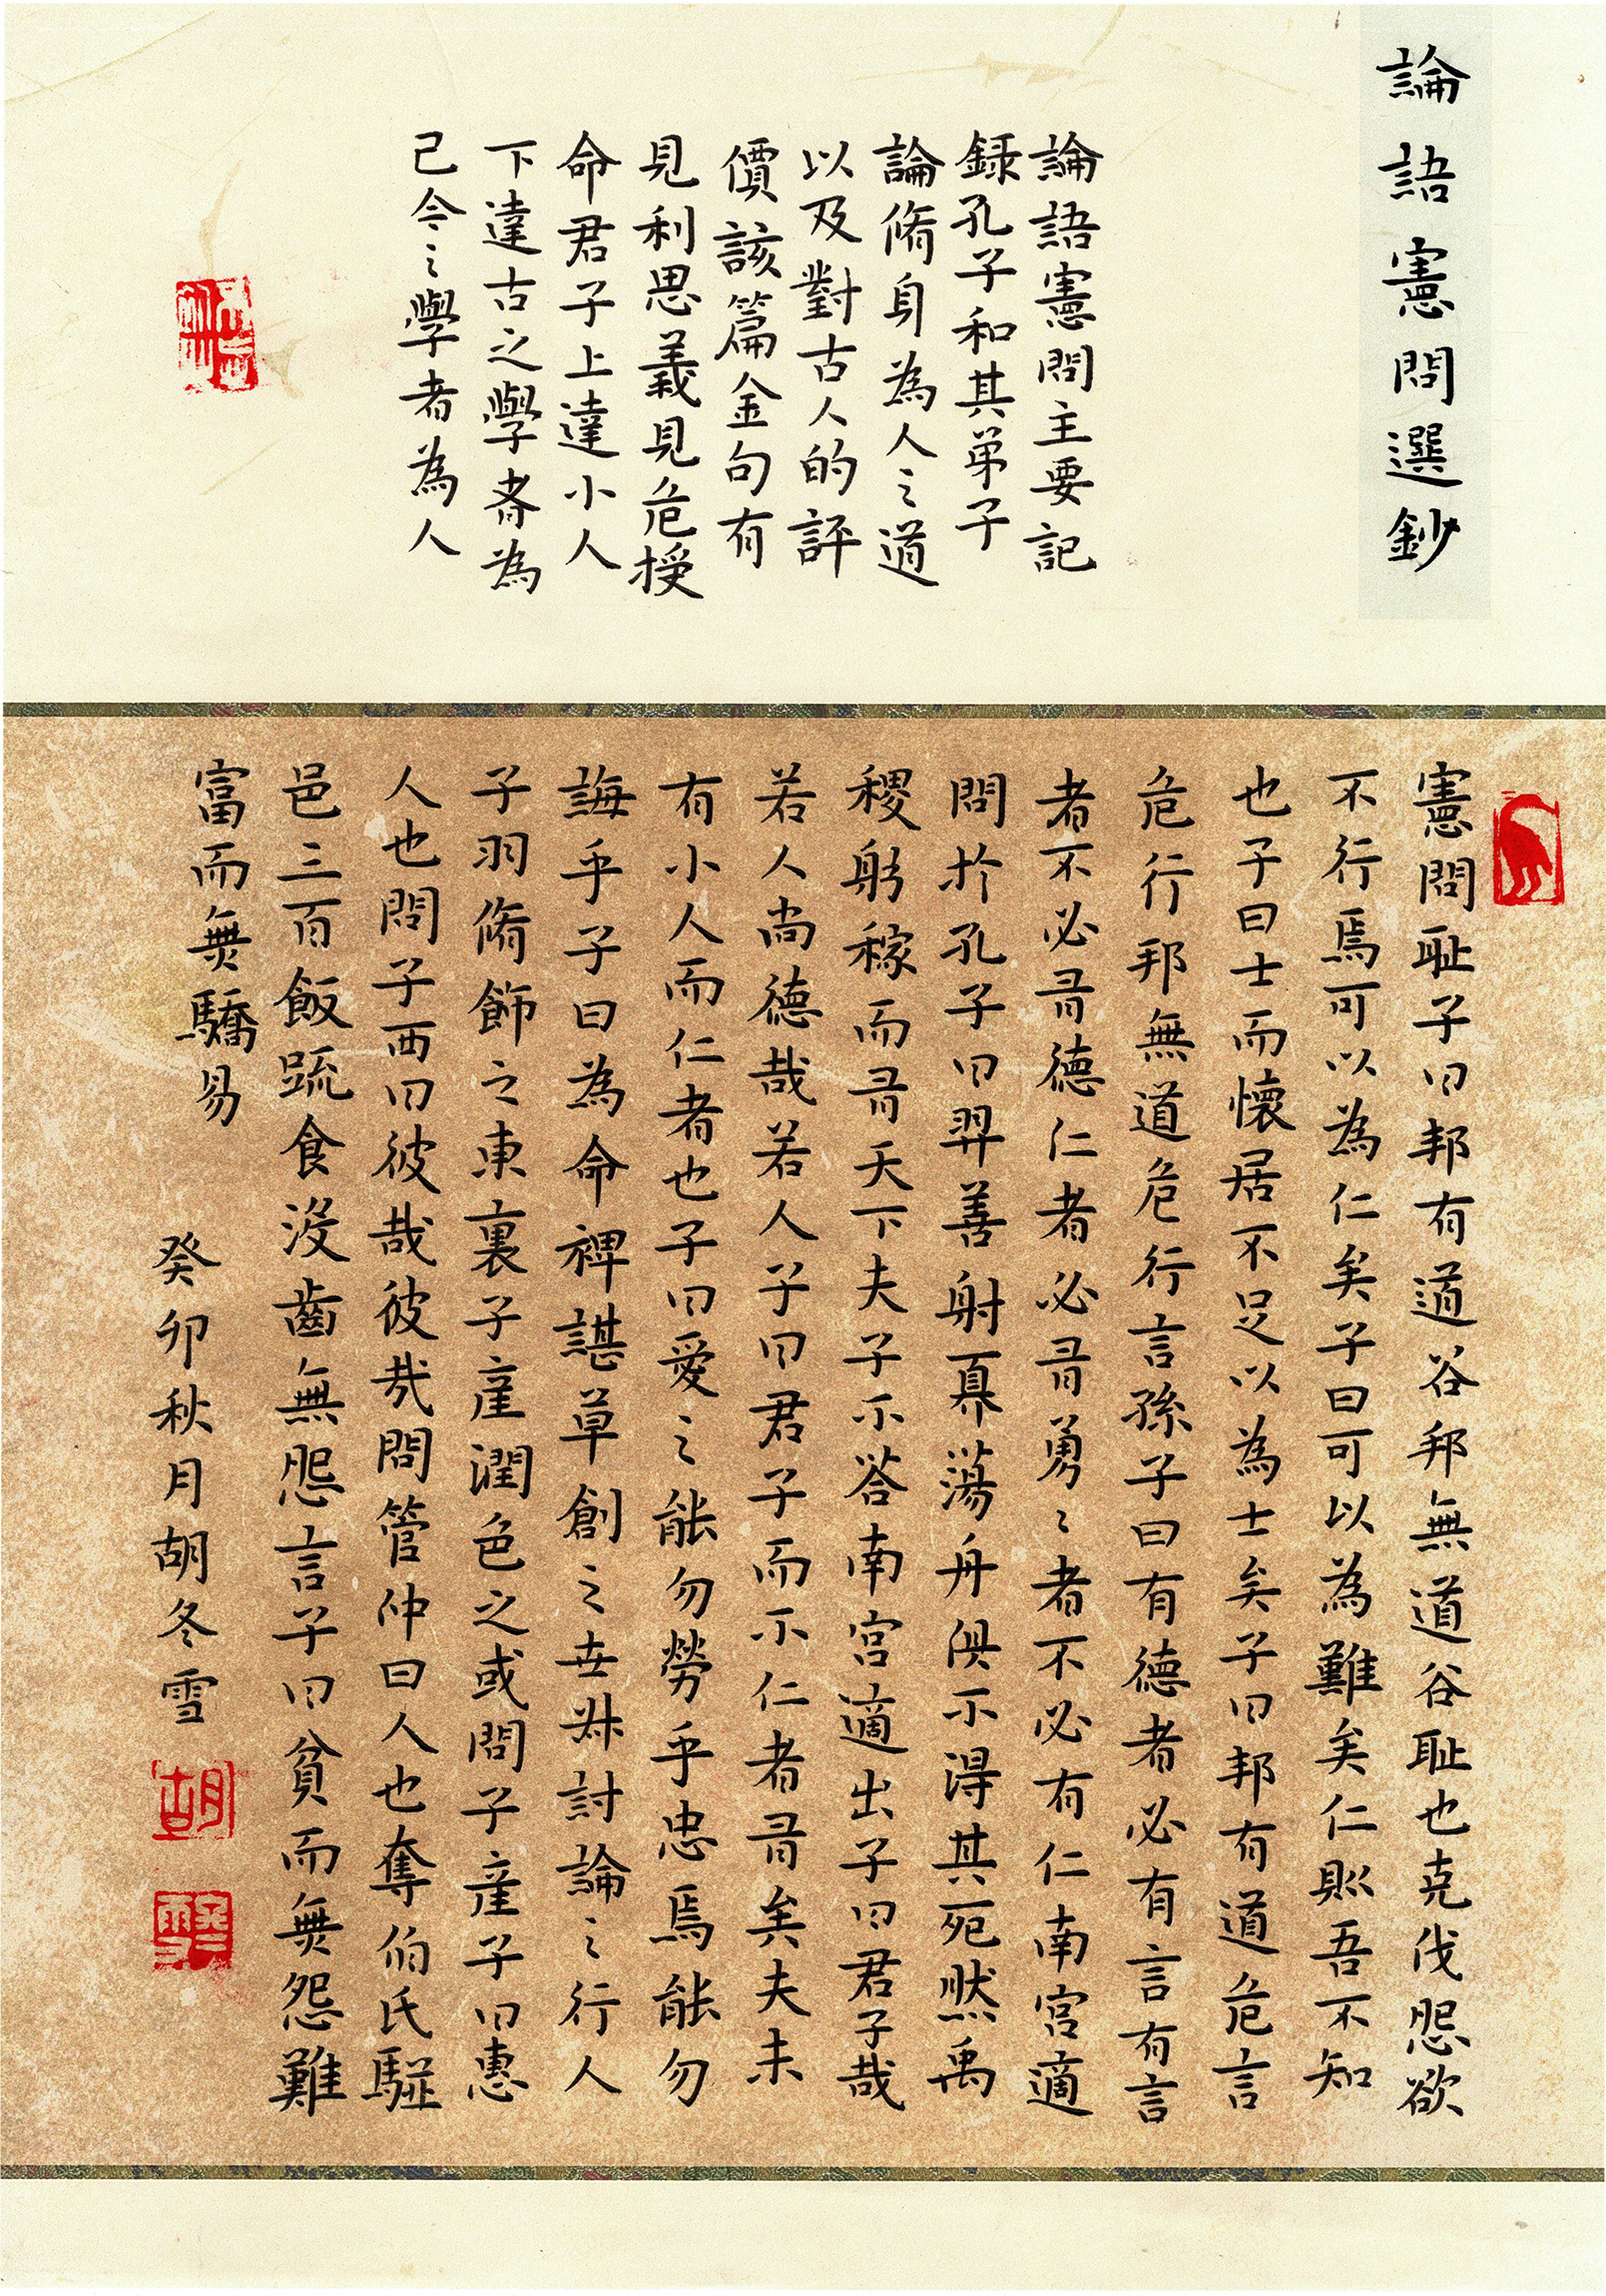 論語憲問選鈔
論語憲問主要記
録孔子和其弟子
論脩身為人之道
以及對古人的評
價該篇金句有
見利思義見危授
命君子上達小人
下達古之學者為
己今之學者為人
憲問耻子曰邦有道谷邦無道谷耻也克伐怨欲
不行焉可以為仁矣子曰可以為難矣仁則吾不知
也子曰士而懷居不足以為士矣子曰邦有道危言
危行邦無道危行言孫子曰有德者必有言有言
者不必有德仁者必有勇勇者不必有仁南宮適
問於孔子曰羿善射奡蕩舟俱不得其死然禹
稷躬稼而有天下夫子不答南宮適出子曰君子哉
若人尚德哉若人子曰君子而不仁者有矣夫未
有小人而仁者也子曰愛之能勿勞乎忠焉能勿
誨乎子曰為命裨諶草創之世叔討論之行人
子羽脩飾之東裏子產潤色之或問子產子曰惠
人也問子西曰彼哉彼哉問管仲曰人也奪伯氏駢
邑三百飯疏食沒齒無怨言子曰貧而無怨難
富而無驕易
癸卯秋月胡冬雪
胡